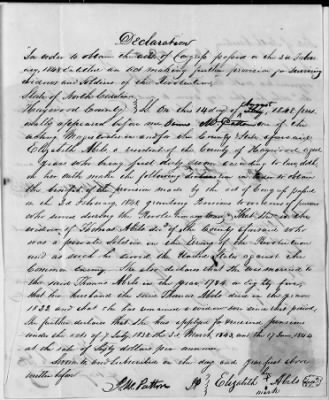 Declaration
In order to obtain the act of Congress passed on the 2d Febru
ary 1848 entitled an act making further provision for surviving
widows and Soldiers of the Revolution
State of North Carolina
Haywood County Sct. On this 14 day of August 1848 pers
onally appeared before me one of the
acting Magistrates in and for the County & State aforesaid
Elizabeth Able a resident of the County of Haywood aged
years who being first duly sworn according to law doth
on her oath make the following declaration in order to obtain
the benefit of the pension made by the act of Congress passed
on the 2d February 1848 granting Pensions to widows of persons
who served during the Revolutionary war That she is the
widow of Thomas Able of the County aforesaid who
was a private Soldier in the Army of the Revolution
and as such he served the United States against the
Common Enemy. She also declares that she was married to
the said Thomas Able in the year 1784 or eighty five,
that her husband the said Thomas Able died in the year
1833 and that she has remained a widow ever since that period,
She further declares that She has applied for & received pensions
under the acts of 7 July 1838 the 3d March 1843 and the 17 June 1844
at the rate of Eighty dollars per annum
Sworn to and Subscribed on the day and year first above
written before
J. M. Patton JP Elizabeth Able
mark